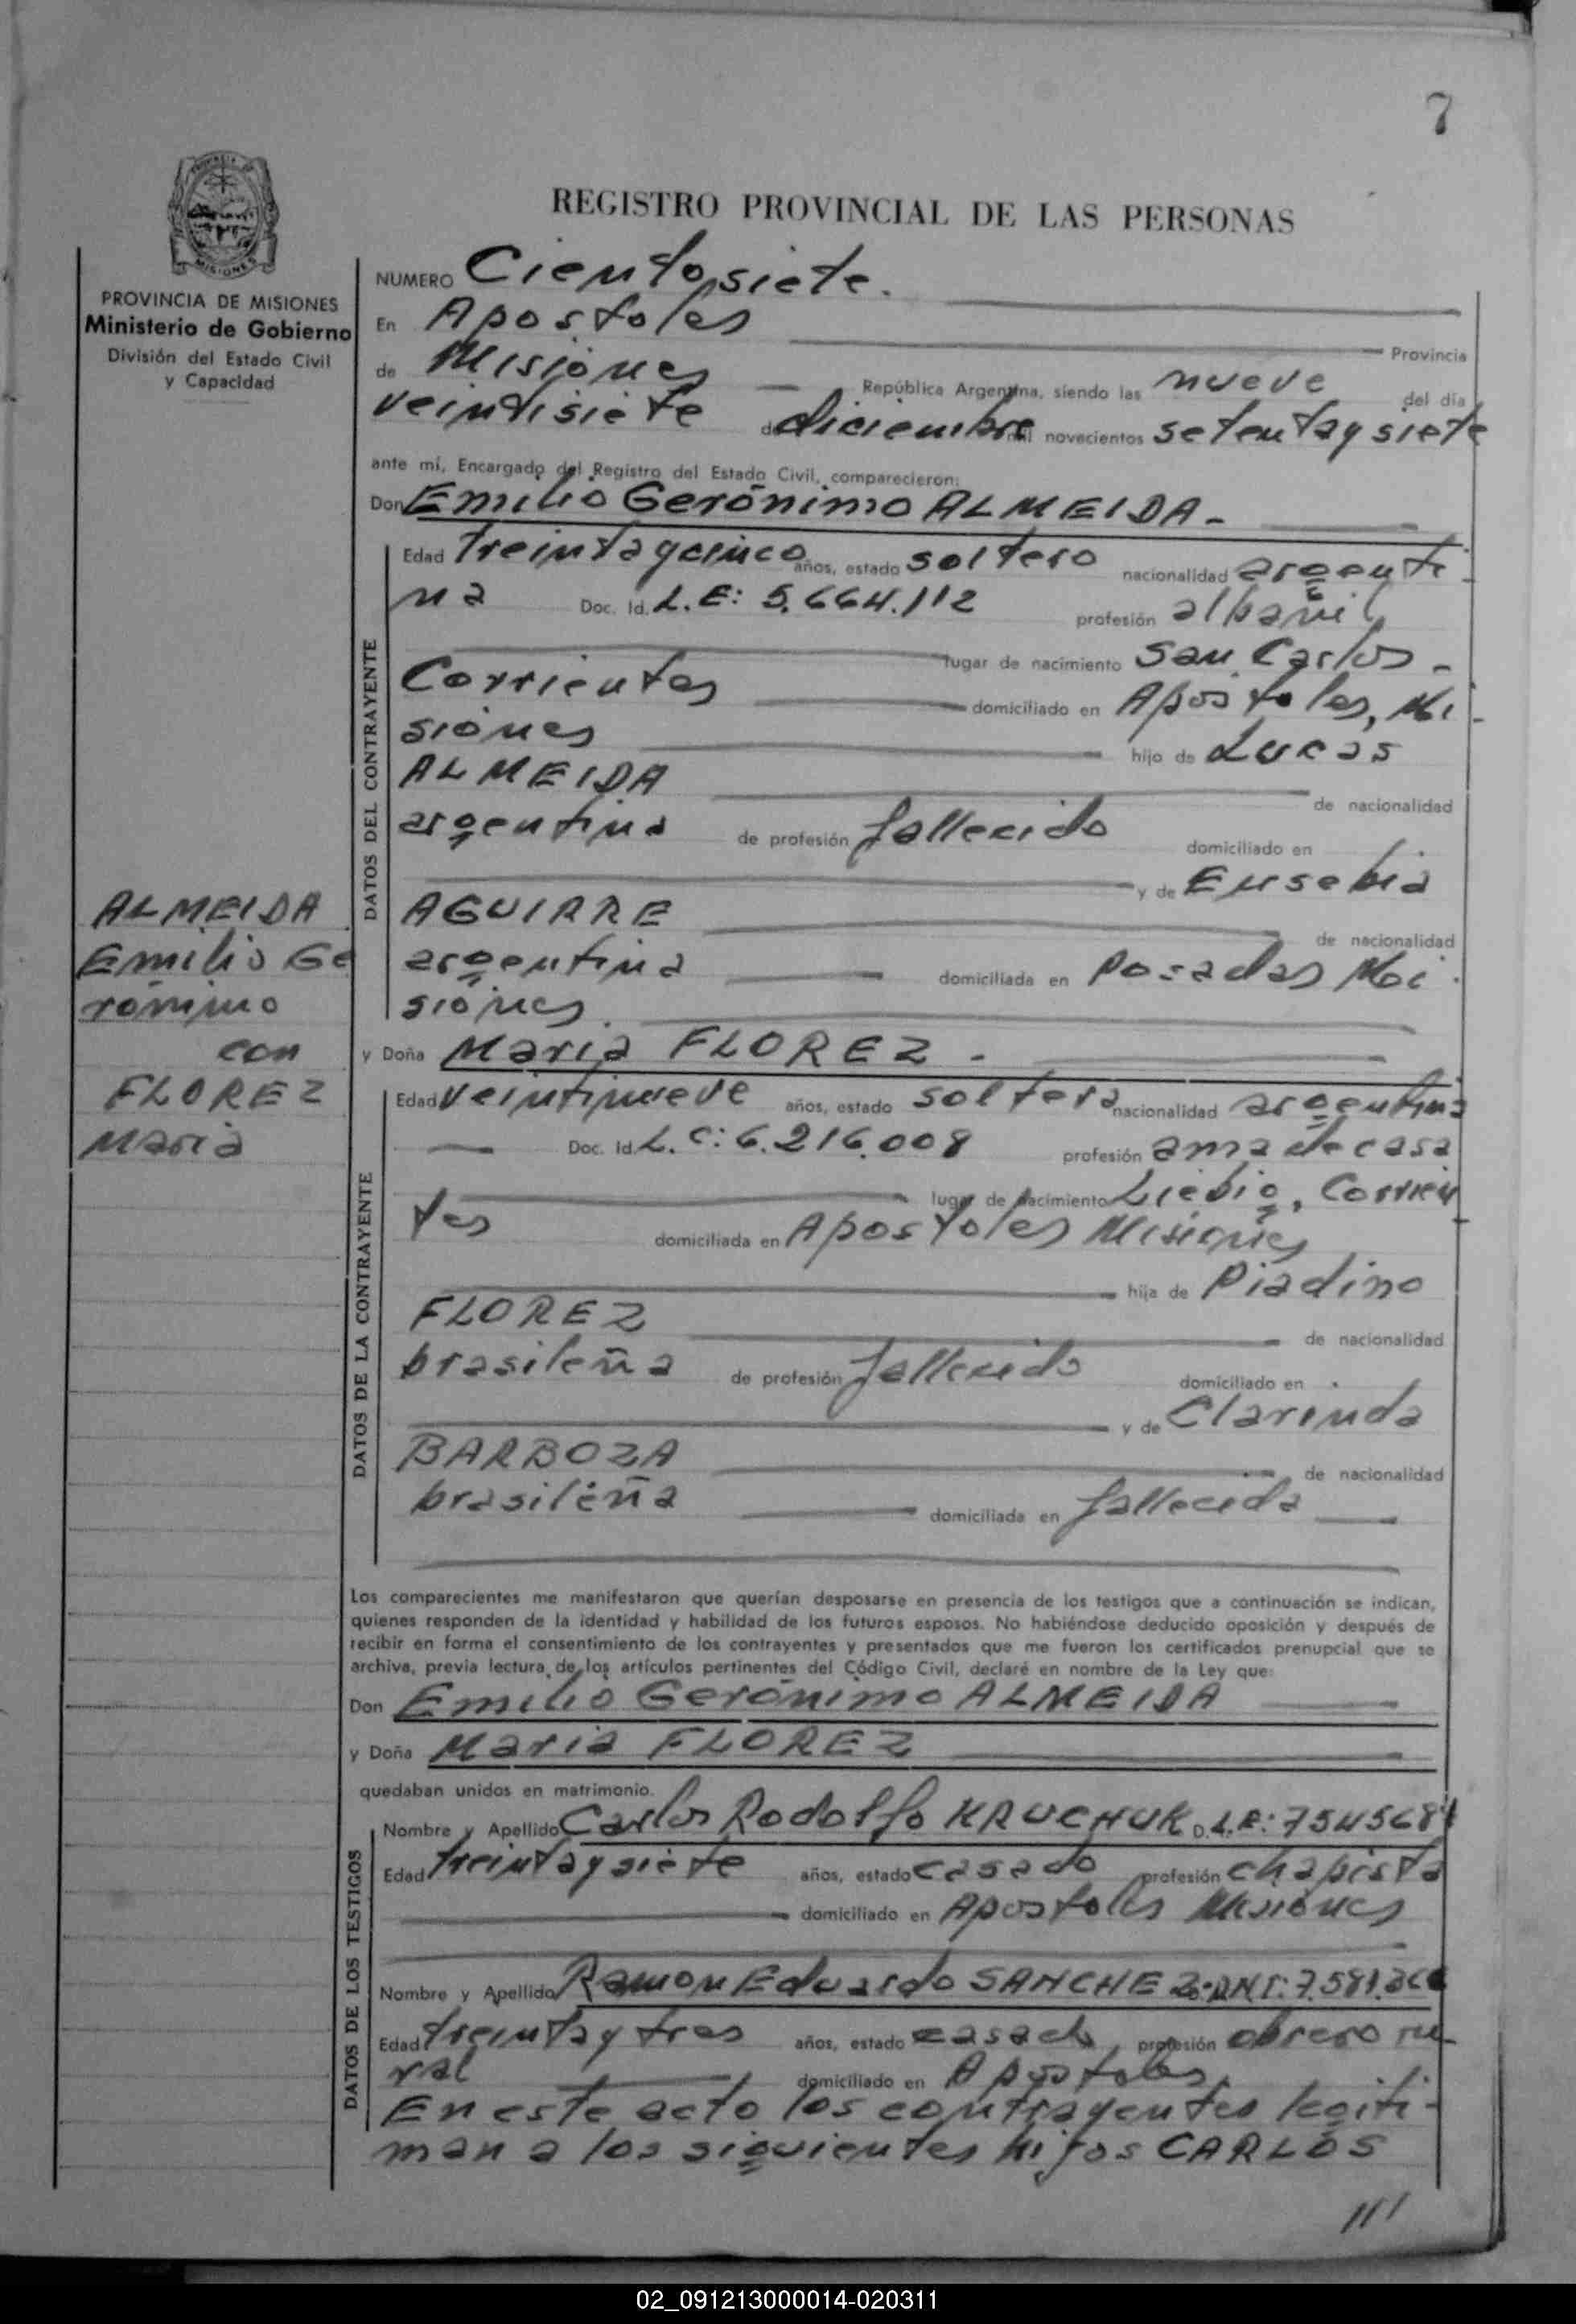 7
REGISTRO PROVINCIAL DE LAS PERSONAS
MISIONES
PROVINCIA DE MISIONES
Ministerio de Gobierno
División del Estado Civil
y Capacidad
NUMERO Ciento siete.
En Apostoles Provincia
de Misiones República Argentina, siendo las nueve del día
veintisiete de diciembre mil novecientos setenta y siete
ante mí, Encargado del Registro del Estado Civil, comparecieron:
Don Emilio Gerónimo ALMEIDA.-
DATOS DEL CONTRAYENTE
Edad Treinta y cinco años, estado soltero nacionalidad argenti-
na Doc. Id. L.E: 5.664.112 profesión albañil
lugar de nacimiento San Carlos-
Corrientes domiciliado en Apóstoles, Mi-
siones hijo de Lucas
ALMEIDA de nacionalidad
argentina de profesión fallecido domiciliado en
y de Eusebia
AGUIRRE de nacionalidad
argentina domiciliada en Posadas Mi-
siones.
y Doña Maria FLOREZ.-
ALMEIDA
Emilio Ge
rónimo
con
FLOREZ
Maria
DATOS DE LA CONTRAYENTE
Edad veintinueve años, estado soltera nacionalidad argentina
Doc. Id. L.C: 6.216.008 profesión ama de casa
lugar de nacimiento Liebig, Corrien-
tes domiciliada en Apostoles Misiones
hija de Piadino
FLOREZ de nacionalidad
brasileña de profesión fallecido domiciliado en
y de Clarinda
BARBOZA de nacionalidad
brasileña domiciliada en fallecida
Los comparecientes me manifestaron que querían desposarse en presencia de los testigos que a continuación se indican,
quienes responden de la identidad y habilidad de los futuros esposos. No habiéndose deducido oposición y después de
recibir en forma el consentimiento de los contrayentes y presentados que me fueron los certificados prenupcial que se
archiva, previa lectura de los artículos pertinentes del Código Civil, declaré en nombre de la Ley que:
Don Emilio Gerónimo ALMEIDA
y Doña Maria FLOREZ
quedaban unidos en matrimonio.
DATOS DE LOS TESTIGOS
Nombre y Apellido Carlos Rodolfo KRUCHUK D. L.E:
Edad treinta y siete años, estado casado profesión chapista
domiciliado en Apostoles Misiones
Nombre y Apellido Ramon Eduardo SANCHEZ
Edad treinta y tres años, estado casado profesión obrero ru-
ral domiciliado en Apostoles.
En este acto los contrayentes legiti-
man a los siguientes hijos CARLOS
///
02_091213000014-020311